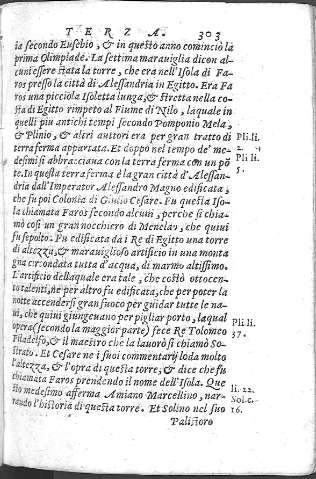 TERZA. 303
ia secondo Eusebio, & in questo anno cominciò la
prima Olimpiade. La settima marauiglia dicon al-
cuni essere stata la torre, che era nell'Isola di Fa
ros presso la città di Alessandria in Egitto. Era Fa
ros una picciola Isoletta lunga, & stretta nella co
sta di Egitto rimpeto al Fiume di Nilo, laquale in
quelli piu antichi tempi secondo Pomponio Mela,
& Plinio, & altri auttori era per gran tratto di
terra ferma appartata. Et doppo nel tempo de' me-
desimi si abbracciaua con la terra ferma con un pō
te. In questa terra ferma è la gran città d'Alessan-
dria dall'Imperator Alessandro Magno edificata,
che fu poi Colonia di Giulio Cesare. Fu questa Iso-
la chiamata Faros secondo alcuni, perche si chia-
mò cosi un gran nocchiero di Menelao, che quiui
fu sepolto. Fu edificata da i Re di Egitto una torre
di altezza, & marauiglioso artificio in una monta
gna circondata tutta d'acqua, di marmo altissimo.
L'artificio dellaquale era tale, che costò ottocen-
to talenti, ne per altro fu edificata, che per poter la
notte accendersi gran fuoco per guidar tutte le na-
ui, che quini giungeuano per pigliar porto, laqual
opera (secondo la maggior parte) fece Re Tolomeo
Filadelfo, & il maestro che la lauorò si chiamò So-
strato. Et Cesare ne i suoi commentarij loda molto
l'altezza, & l'opra di questa torre, & dice che fu
chiamata Faros prendendo il nome dell'Isola. Que
sto medesimo afferma Amiano Marcellino, nar-
rando l'historia di questa torre. Et Solino nel suo
Palistoro
Pli.li.
2.
Pli li.
5.
Pli.li.
37.
li. 22.
Sol.c.
16.